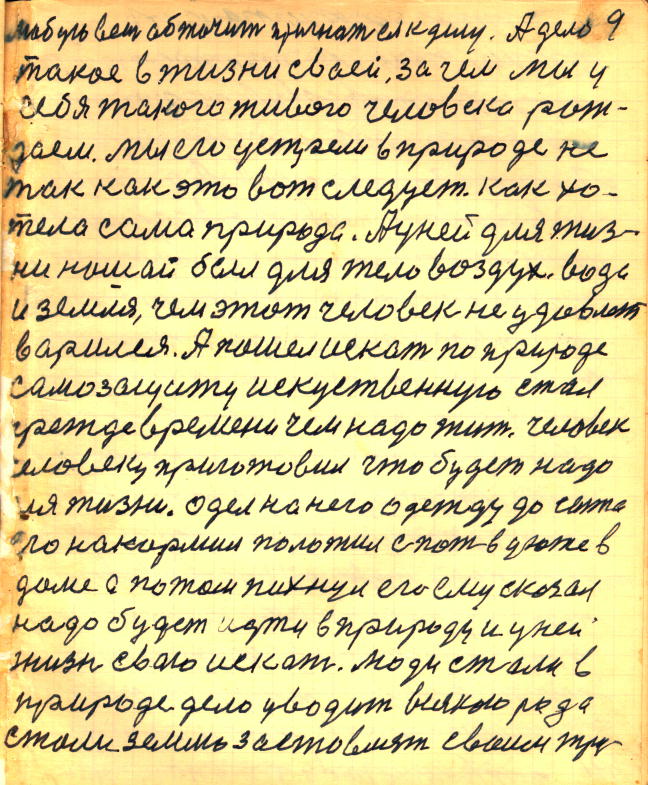 обточит признает ся к делу. А дело 9
такое в жизни своей, зачем мы у
себя такого живого человека рож-
даем. мы его устрем в природе не
так как это вот следует. как хо-
тела сама природа. А у ней для жиз-
ни нашай бал для тело воздух. вода
и земля, чем этот человек не удовлет
варился. А пошел искат по природе
самозащиту искуственную стал
прежде времени чем надо жит. человек
человеку приготовил что будет надо
для жизни. одел на него одежду до
его накормил положил спат в
доме а потом пихнул его ему сказал
надо будет идти в природу и у ней
жизн сваю искат. люди стали в
природе дело уводит всякаю рода
стали землю заставлят своим тру